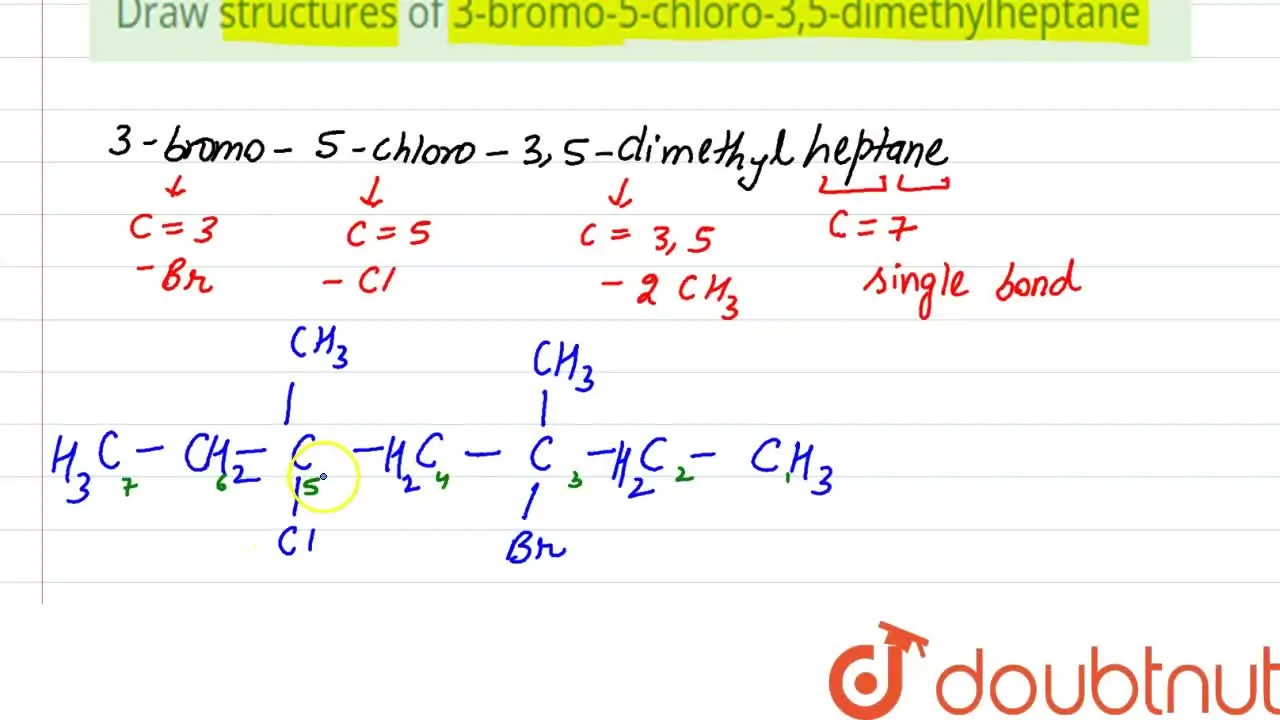 Draw structures of 3-bromo-5-chloro-3,5-dimethylheptane
3-bromo-5-chloro-3,5-dimethylheptane
C=3 C=5 C=3,5 C=7
-Br -Cl -2CH3 single bond
CH3 CH3
H3C-CH2-C-H2C-C-H2C-CH3
7 6 5 4 3 2 1
Cl Br
doubtnut